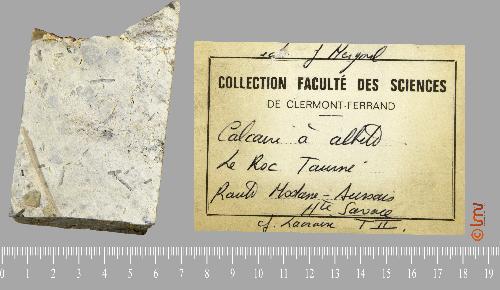 ech. J Mergoil
COLLECTION FACULTÉ DES SCIENCES
DE CLERMONT-FERRAND
Calcaire à albite
Le Roc Tourné
Route Modane - Aussois
Hte Savoie
cf. Lacroix T II.
0 1 2 3 4 5 6 7 8 9 10 11 12 13 14 15 16 17 18 19
© LMV